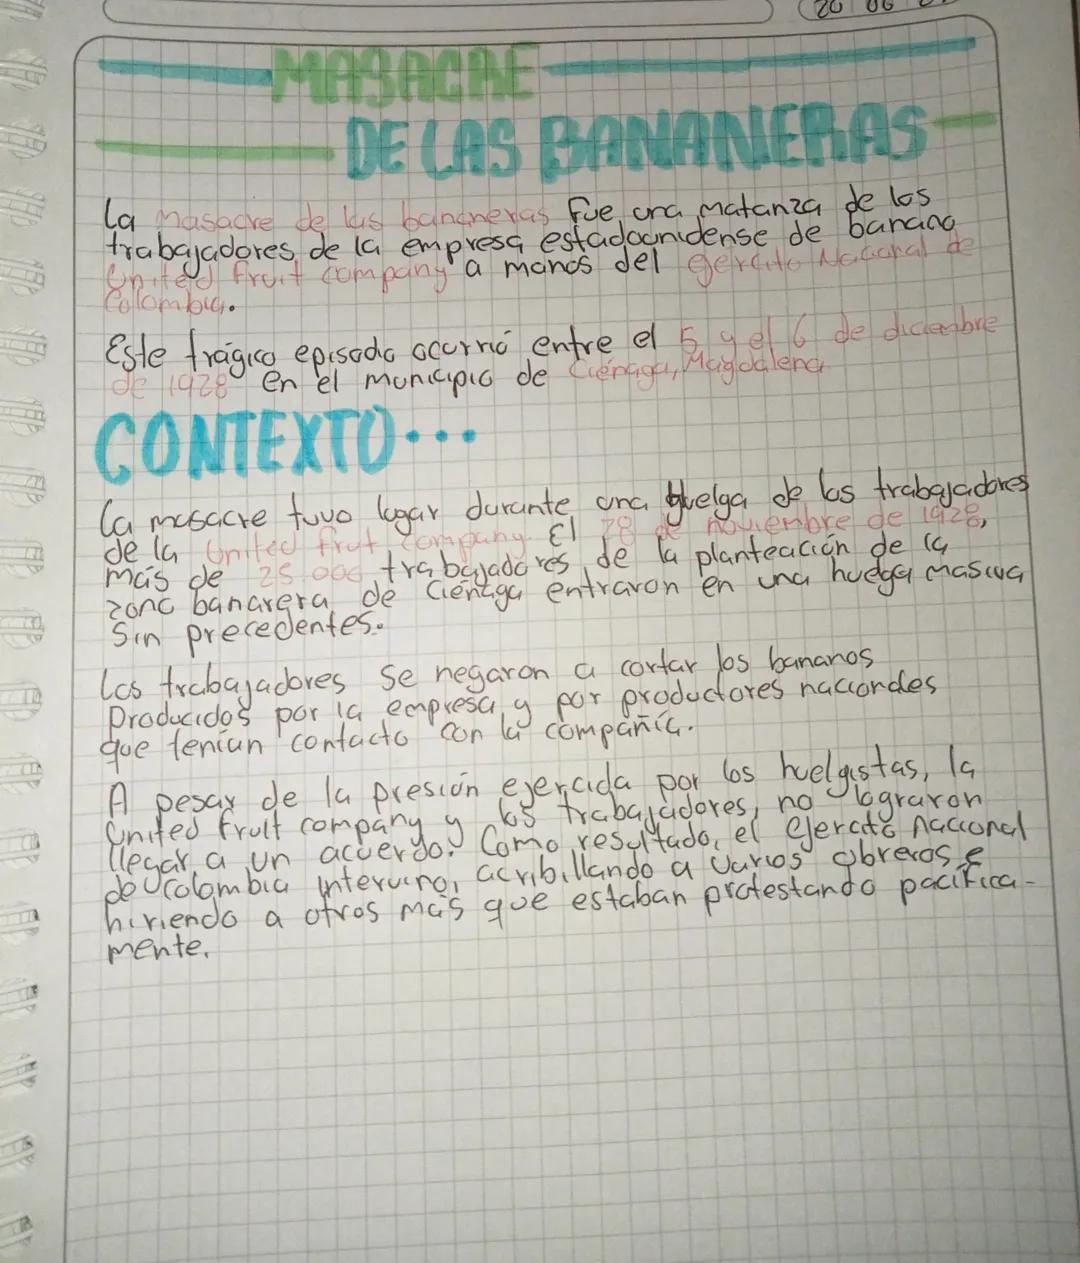 20 06
MASACRE
DE LAS BANANERAS
La masacre de las bananeras fue una matanza de los
trabajadores de la empresa estadounidense de banano
United fruit company a manos del ejercito Nacional de
Colombia.
Este trágico episodio ocurrió entre el 5 y el 6 de diciembre
de 1928 en el municipio de Ciénaga, Magdalena
CONTEXTO...
La masacre tuvo lugar durante una huelga de los trabajadores
de la United frut company. El 28 de noviembre de 1928,
más de 25 000 trabajadores de la planteación de la
zona bananera de Ciénaga entraron en una huega masiva
Sin precedentes.
Los trabajadores se negaron a cortar los bananos
Producidos por la empresa y por productores nacionales
que tenían contacto con la compañía.
A pesar de la presión ejercida por los huelgistas, la
United fruit company y los trabajadores, no lograron
llegar a un acuerdo. Como resultado, el ejercito nacional
de Colombia intervino, acribillando a varios obreros e
hiriendo a otros más que estaban protestando pacifica-
mente.